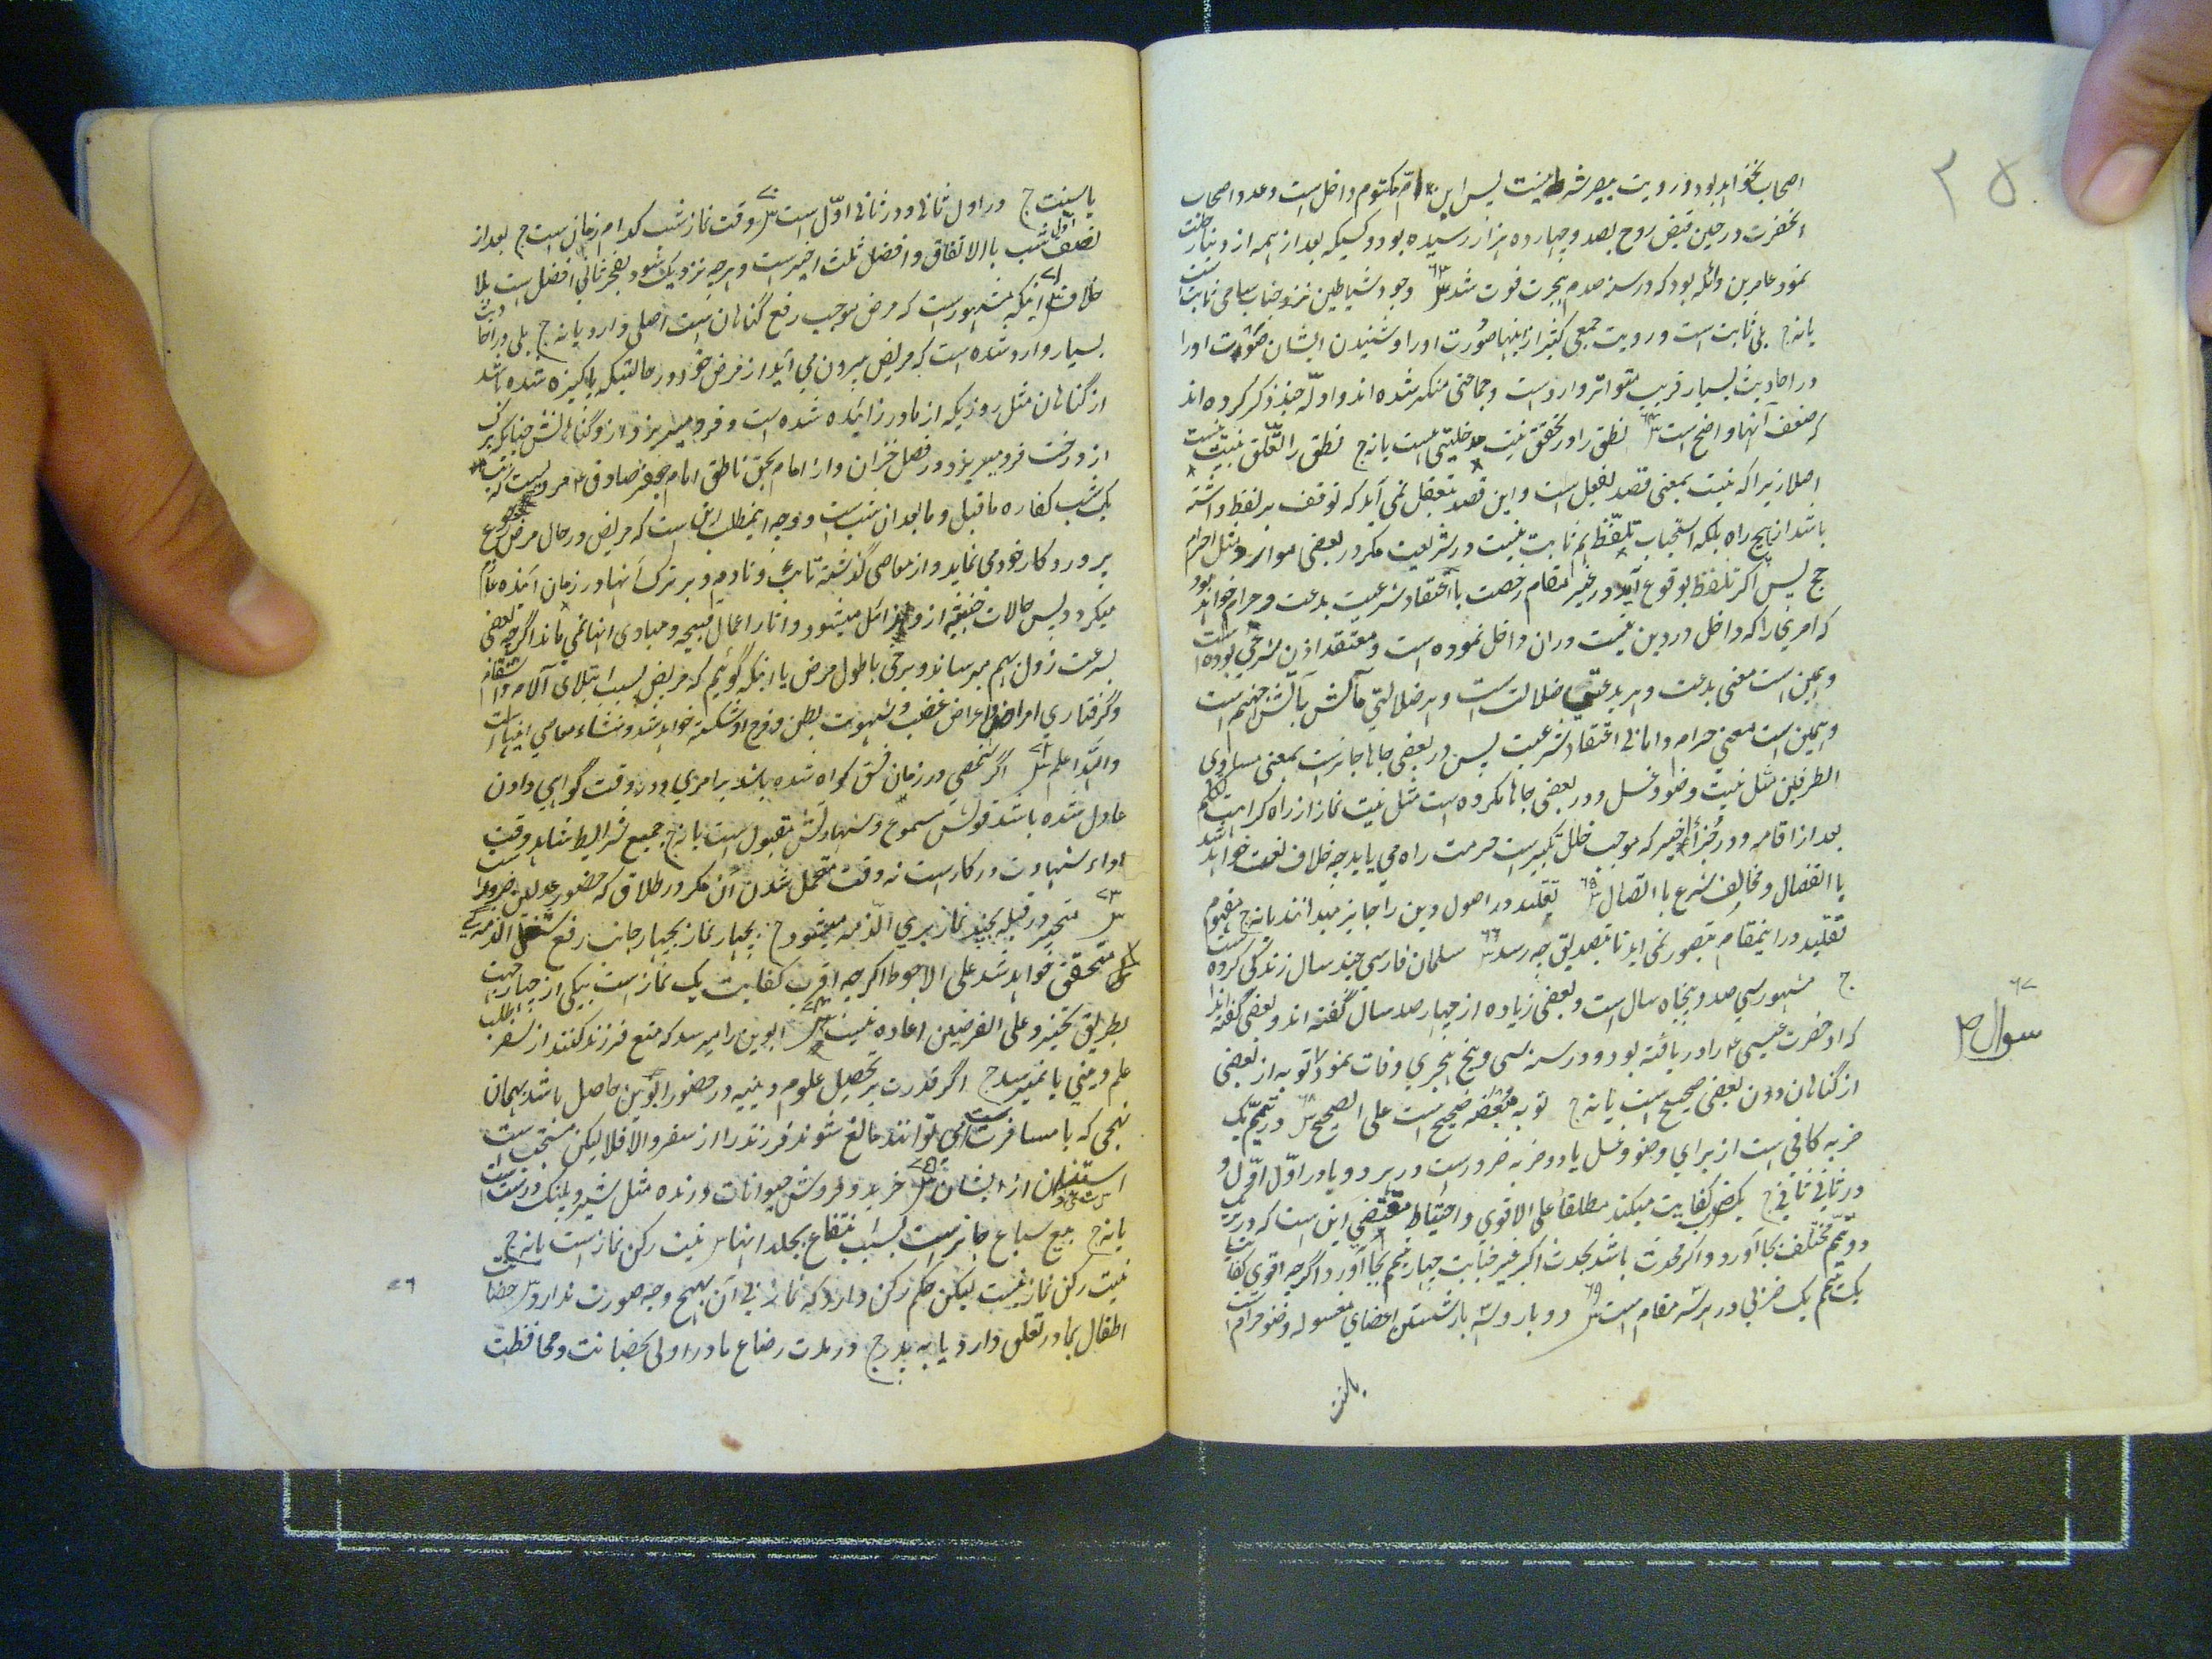 ۲۵
اصحاب نخواهد بود و رویت بصر شرط نیست پس ابن ام مکتوم داخل است و عدد اصحاب
آنحضرت در حین قبض روح بصد و چهارده هزار رسیده بود و کسیکه بعد از همه از دنیا رحلت
نمود عامر بن واثله بود که در سنه صدم هجرت فوت شد س ۶۳ وجود شیاطین نزد جناب سامی ثابت است
یا نه ج بلی ثابت است و رویت جمعی کثیر از اینها صورت او را و شنیدن ایشان صوت او را
در احادیث بسیار قریب بتواتر وارد است و جماعتی منکر شده اند و ادله چند ذکر کرده اند
که ضعف آنها واضح است س ۶۴ نطق را در تحقق نیت مدخلیتی هست یا نه ج نطق را تعلق بنیت نیست
اصلا زیرا که نیت بمعنی قصد لفعل است و این قصد بتعقل نمی آید که توقف بر لفظ داشته
باشد از هیچ راه بلکه استحباب تلفظ هم ثابت نیست در شریعت مگر در بعضی موارد مثل احرام
حج پس اگر تلفظ بوقوع آید در غیر مقام رخصت با اعتقاد شرعیت بدعت و حرام خواهد بود
که امریرا که داخل در دین نیست در ان داخل نموده است و معتقد اذن شرعی بوده است
و همین است معنی بدعت و هر بدعتی ضلالت است و هر ضلالتی مآلش بآتش جهنم است
و همین است معنی حرام و اما بی اعتقاد شرعیت پس در بعضی جاها جایزست بمعنی مساوی
الطرفین مثل نیت وضو و غسل و در بعضی جاها مکروه است مثل نیت نماز از راه کراهت تکلم
بعد از اقامه و در جزء اخیر که موجب خلل تکبیرست حرمت راه می یابد چه خلاف لغت خواهد شد
با انفصال و مخالف شرع با اتصال س ۶۵ تقلید در اصول دین را جایز میدانند یا نه ج مفهوم
تقلید در اینمقام بتصور نمی اید تا بتصدیق چه رسد س ۶۶ سلمان فارسی چند سال زندگی کرده است
ج مشهور سیصد و پنجاه سال است و بعضی زیاده از چهارصد سال گفته اند و بعضی گفته اند
که او حضرت عیسی ع را دریافته بود و در سنه سی و پنج هجری وفات نمود توبه از بعضی
۶۷ سوال
از گناهان دون بعضی صحیح است یا نه ج توبه مبعضه صحیح است علی الصحیح س ۶۸ در تیمم یک
ضربه کافی است از برای وضو و غسل یا دو ضربه ضرورست در هر دو یا در اول اول و
در ثانی ثانی ج یک ضرب کفایت میکند مطلقا علی الاقوی و احتیاط مقتضی این است که در هر یک
دو تیمم مختلف بجا آورد و اگر محدث باشد بحدث اکبر غیر جنابت چهار تیمم بجا آورد اگر چه اقوی کفایت
یک تیمم یک ضربی در هر سه مقام است س ۶۹ دو بار و سه بار شستن اعضای مغسوله وضو حرام است
یا سنت
یا سنت ج در اول ثانی و در ثانی اول است س ۷۰ وقت نماز شب کدام زمان است ج بعد از
نصف اول شب با الاتفاق و افضل ثلث اخیر است و هر چه نزدیک شود بفجر ثانی افضل است بلا
خلاف س ۷۱ اینکه مشهور است که مرض موجب رفع گناهان است اصلی دارد یا نه ج بلی در احادیث
بسیار وارد شده است که مریض بیرون می آید از مرض خود در حالتیکه پاکیزه شده باشد
از گناهان مثل روزیکه از مادر زائیده شده است و فرو میریزد از و گناهانش چنانکه برگ
از درخت فرو میریزد در فصل خزان و از امام بحق ناطق امام جعفر صادق ع مرویست که تب
یک شب کفاره ما قبل و ما بعدان شب است و وجه اینمطلب این است که مریض در حال مرض رجوع
پروردکار خود می نماید و از معاصی گذشته تائب و نادم و بر ترک آنها در زمان آینده عازم
میگردد پس حالات خبیثه از و زائل میشود و اثار اعمال قبیحه و مبادی انها نمی ماند اگر چه بعضی
بسرعت زوال بهم رساند و برخی باطول مرض یا اینکه گوئیم که مریض بسبب ابتلای آلام و اسقام
و گرفتاری امراض و اعراض غضب و شهوت بطن و فرج او شکسته خواهد شد و منشاء معاصی اینهاست
والله اعلم س ۷۲ اگر شخصی در زمان فسق گواه شده باشد بر امری و در وقت گواهی دادن
عادل شده باشد قولش مسموع و شهادتش مقبول است یا نه ج جمیع شرایط شاهد وقت
اداء شهادت در کارست نه وقت متحمل شدن آن مگر در طلاق که حضور عدلین ضرور است
س ۷۳ متحیر در قبله بچند نماز بری الذمه میشود ج بچهار نماز بچهار جانب رفع شغل الذمه
متحقق خواهد شد علی الاحوط اگر چه اقرب کفایت یک نماز است بیکی از چهار جهت
بطریق تخییر و علی الفرضین اعاده نیست س ۷۴ ابوین را میرسد که منع فرزند کنند از سفر بطلب
علم دینی یا نمیرسد ج اگر قدرت بر تحصیل علوم دینیه در حضور ابوین حاصل باشد بهمان
نهجی که با مسافرت است می توانند مانع شوند فرزند را از سفر و الا فلا لیکن مستحب است
استیذان از ایشان س ۷۵ خرید و فروش حیوانات درنده مثل شیر و پلنک درست است
یا نه ج بیع سباع جایز است بسبب انتفاع بجلد انها س نیت رکن نماز است یا نه ج
۷۶
نیت رکن نماز نیست لیکن حکم رکن دارد که نماز بی آن بهیچ وجه صورت ندارد س حضانت
اطفال بمادر تعلق دارد یا به پدر ج در مدت رضاع مادر اولی بحضانت و محافظت